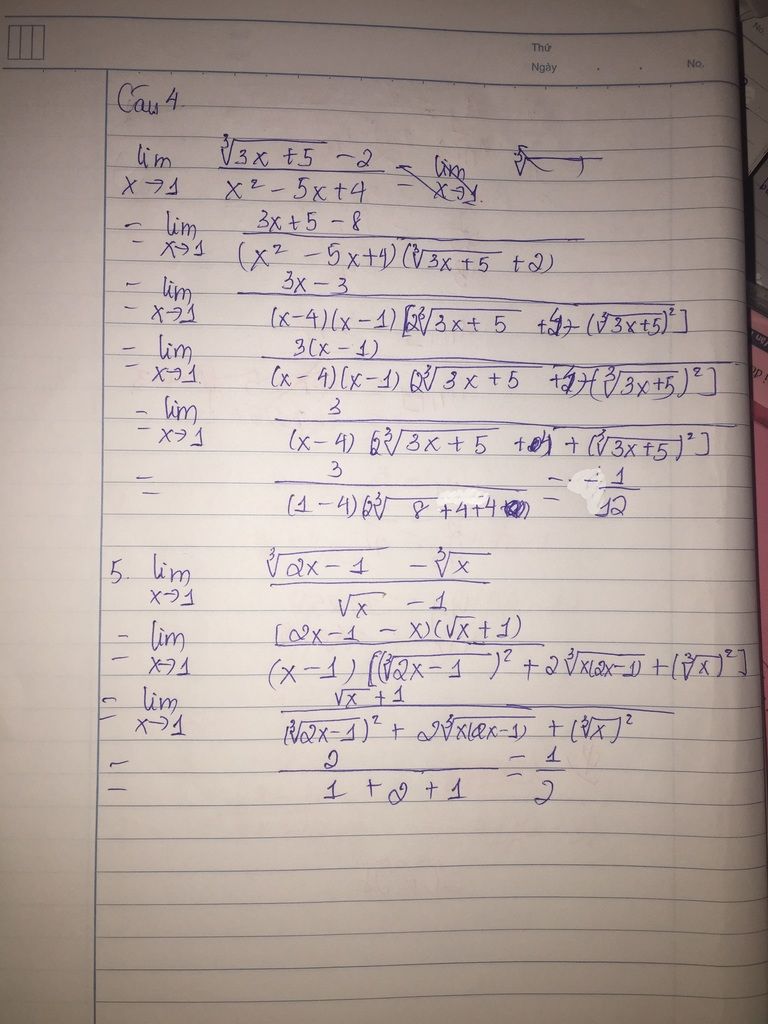 Thứ
Ngày . . No.
Câu 4.
lim x→1 (∛(3x+5) - 2)/(x² - 5x + 4) = lim x→1
= lim x→1 (3x+5-8)/((x² - 5x+4)(∛(3x+5) + 2)
= lim x→1 (3x-3)/((x-4)(x-1)[2∛(3x+5) + 4 + (∛(3x+5))²]
= lim x→1 3(x-1)/((x-4)(x-1)(2∛(3x+5) + 4 + (∛(3x+5))²]
= lim x→1 3/((x-4)(2∛(3x+5) + 4 + (∛(3x+5))²]
= 3/((1-4)(2∛(8+4+4) = -1/12
5. lim x→1 (∛(2x-1) - ∛x)/(√x - 1)
= lim x→1 [2x-1-x)(√x+1)/((x-1)[(∛(2x-1))² + 2∛(x(2x-1)) + (∛x)²]
= lim x→1 (√x+1)/((∛(2x-1))² + 2∛(x(2x-1)) + (∛x)²
= 2/(1+2+1) = 1/2